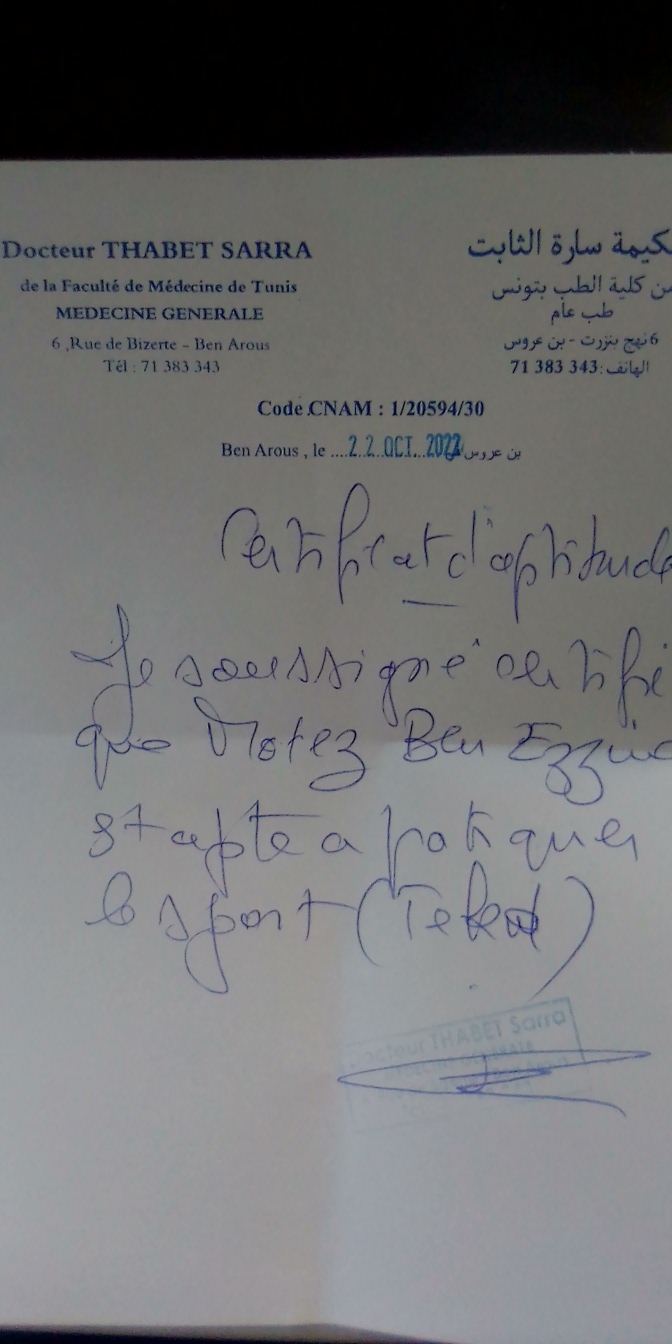 Docteur THABET SARRA
de la Faculté de Médecine de Tunis
MEDECINE GENERALE
6 ,Rue de Bizerte - Ben Arous
Tél : 71 383 343
كيمة سارة الثابت
من كلية الطب بتونس
طب عام
6 نهج بنزرت - بن عروس
الهاتف: 343 383 71
Code CNAM : 1/20594/30
Ben Arous , le .... 22 OCT. 2022 بن عروس في
Certificat d'aptitude
Je soussigné certifie
que Motez Ben
est apte a pratiquer
le sport (
Docteur THABET Sarra